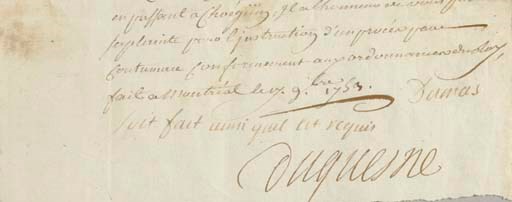 en passant a Choëguin, Il a l'honneur de vous
sa plainte pour l'instruction d'un procés par
Coutumace Conformement aux ordonnances du Roy,
fait a Montréal le 7. 9.bre 1753. Dumas
Soit fait ainsi quil est requis
Duquesne